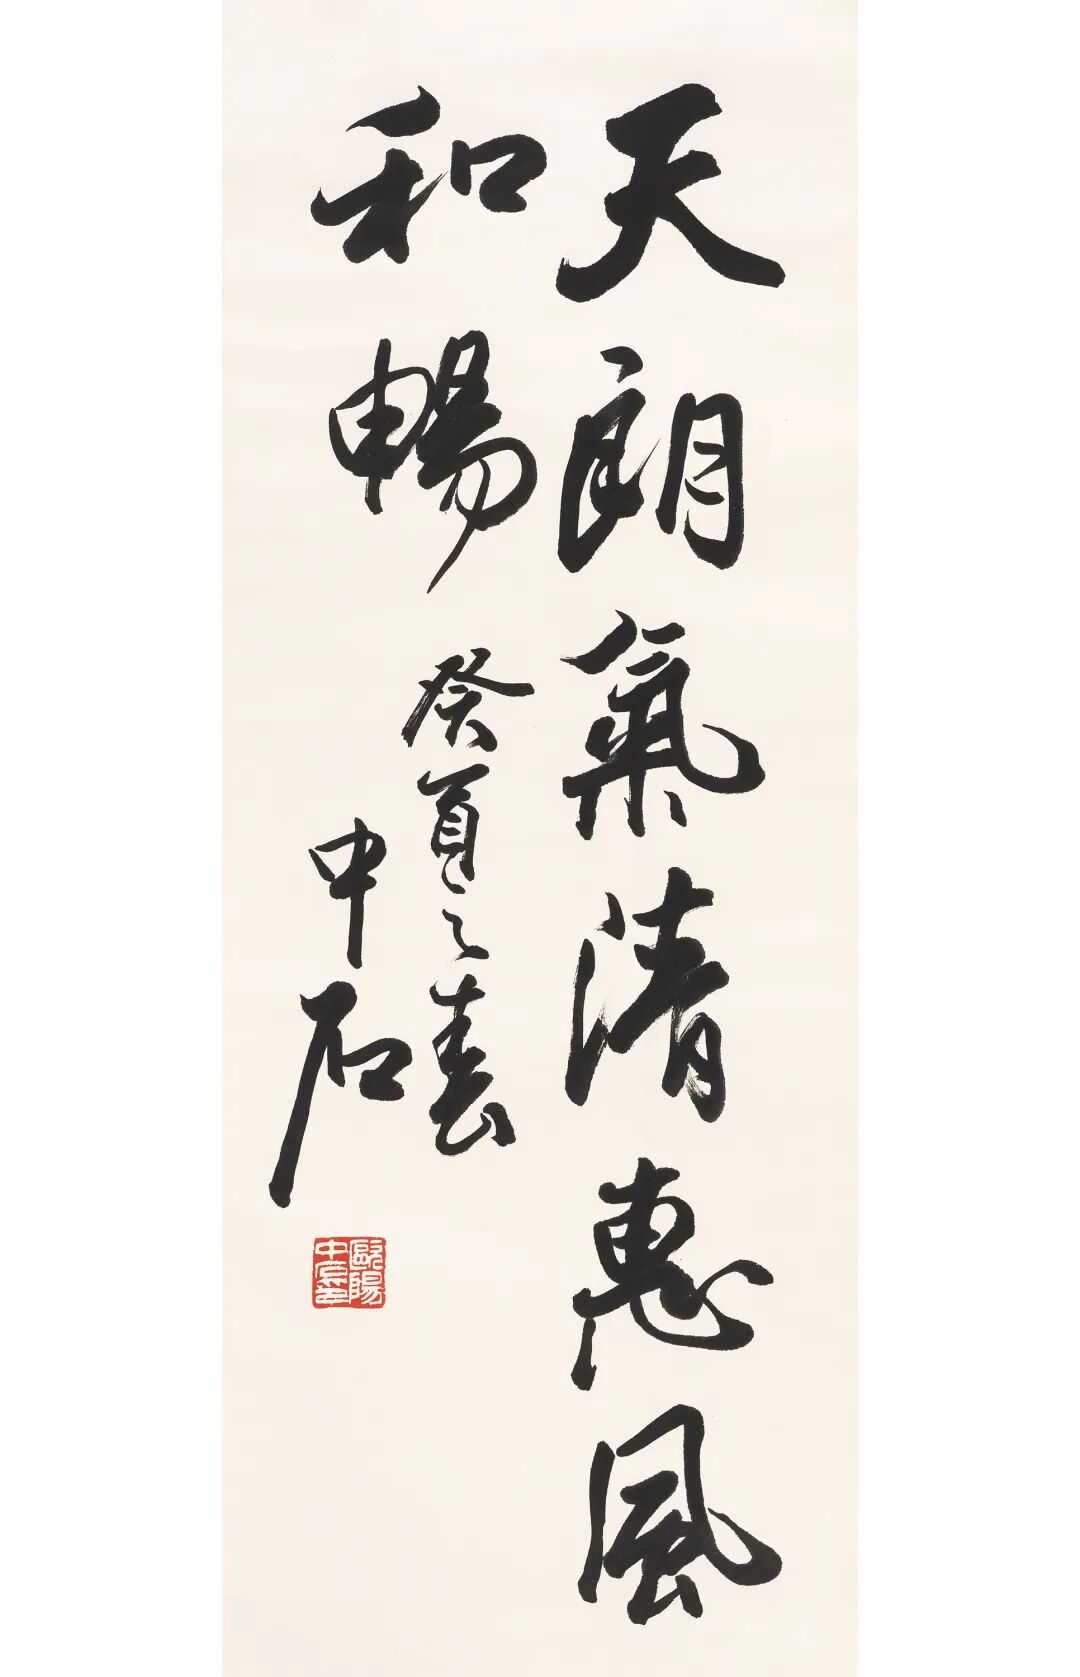 天朗氣清惠風
和暢
癸酉之春
中石
歐陽
中石